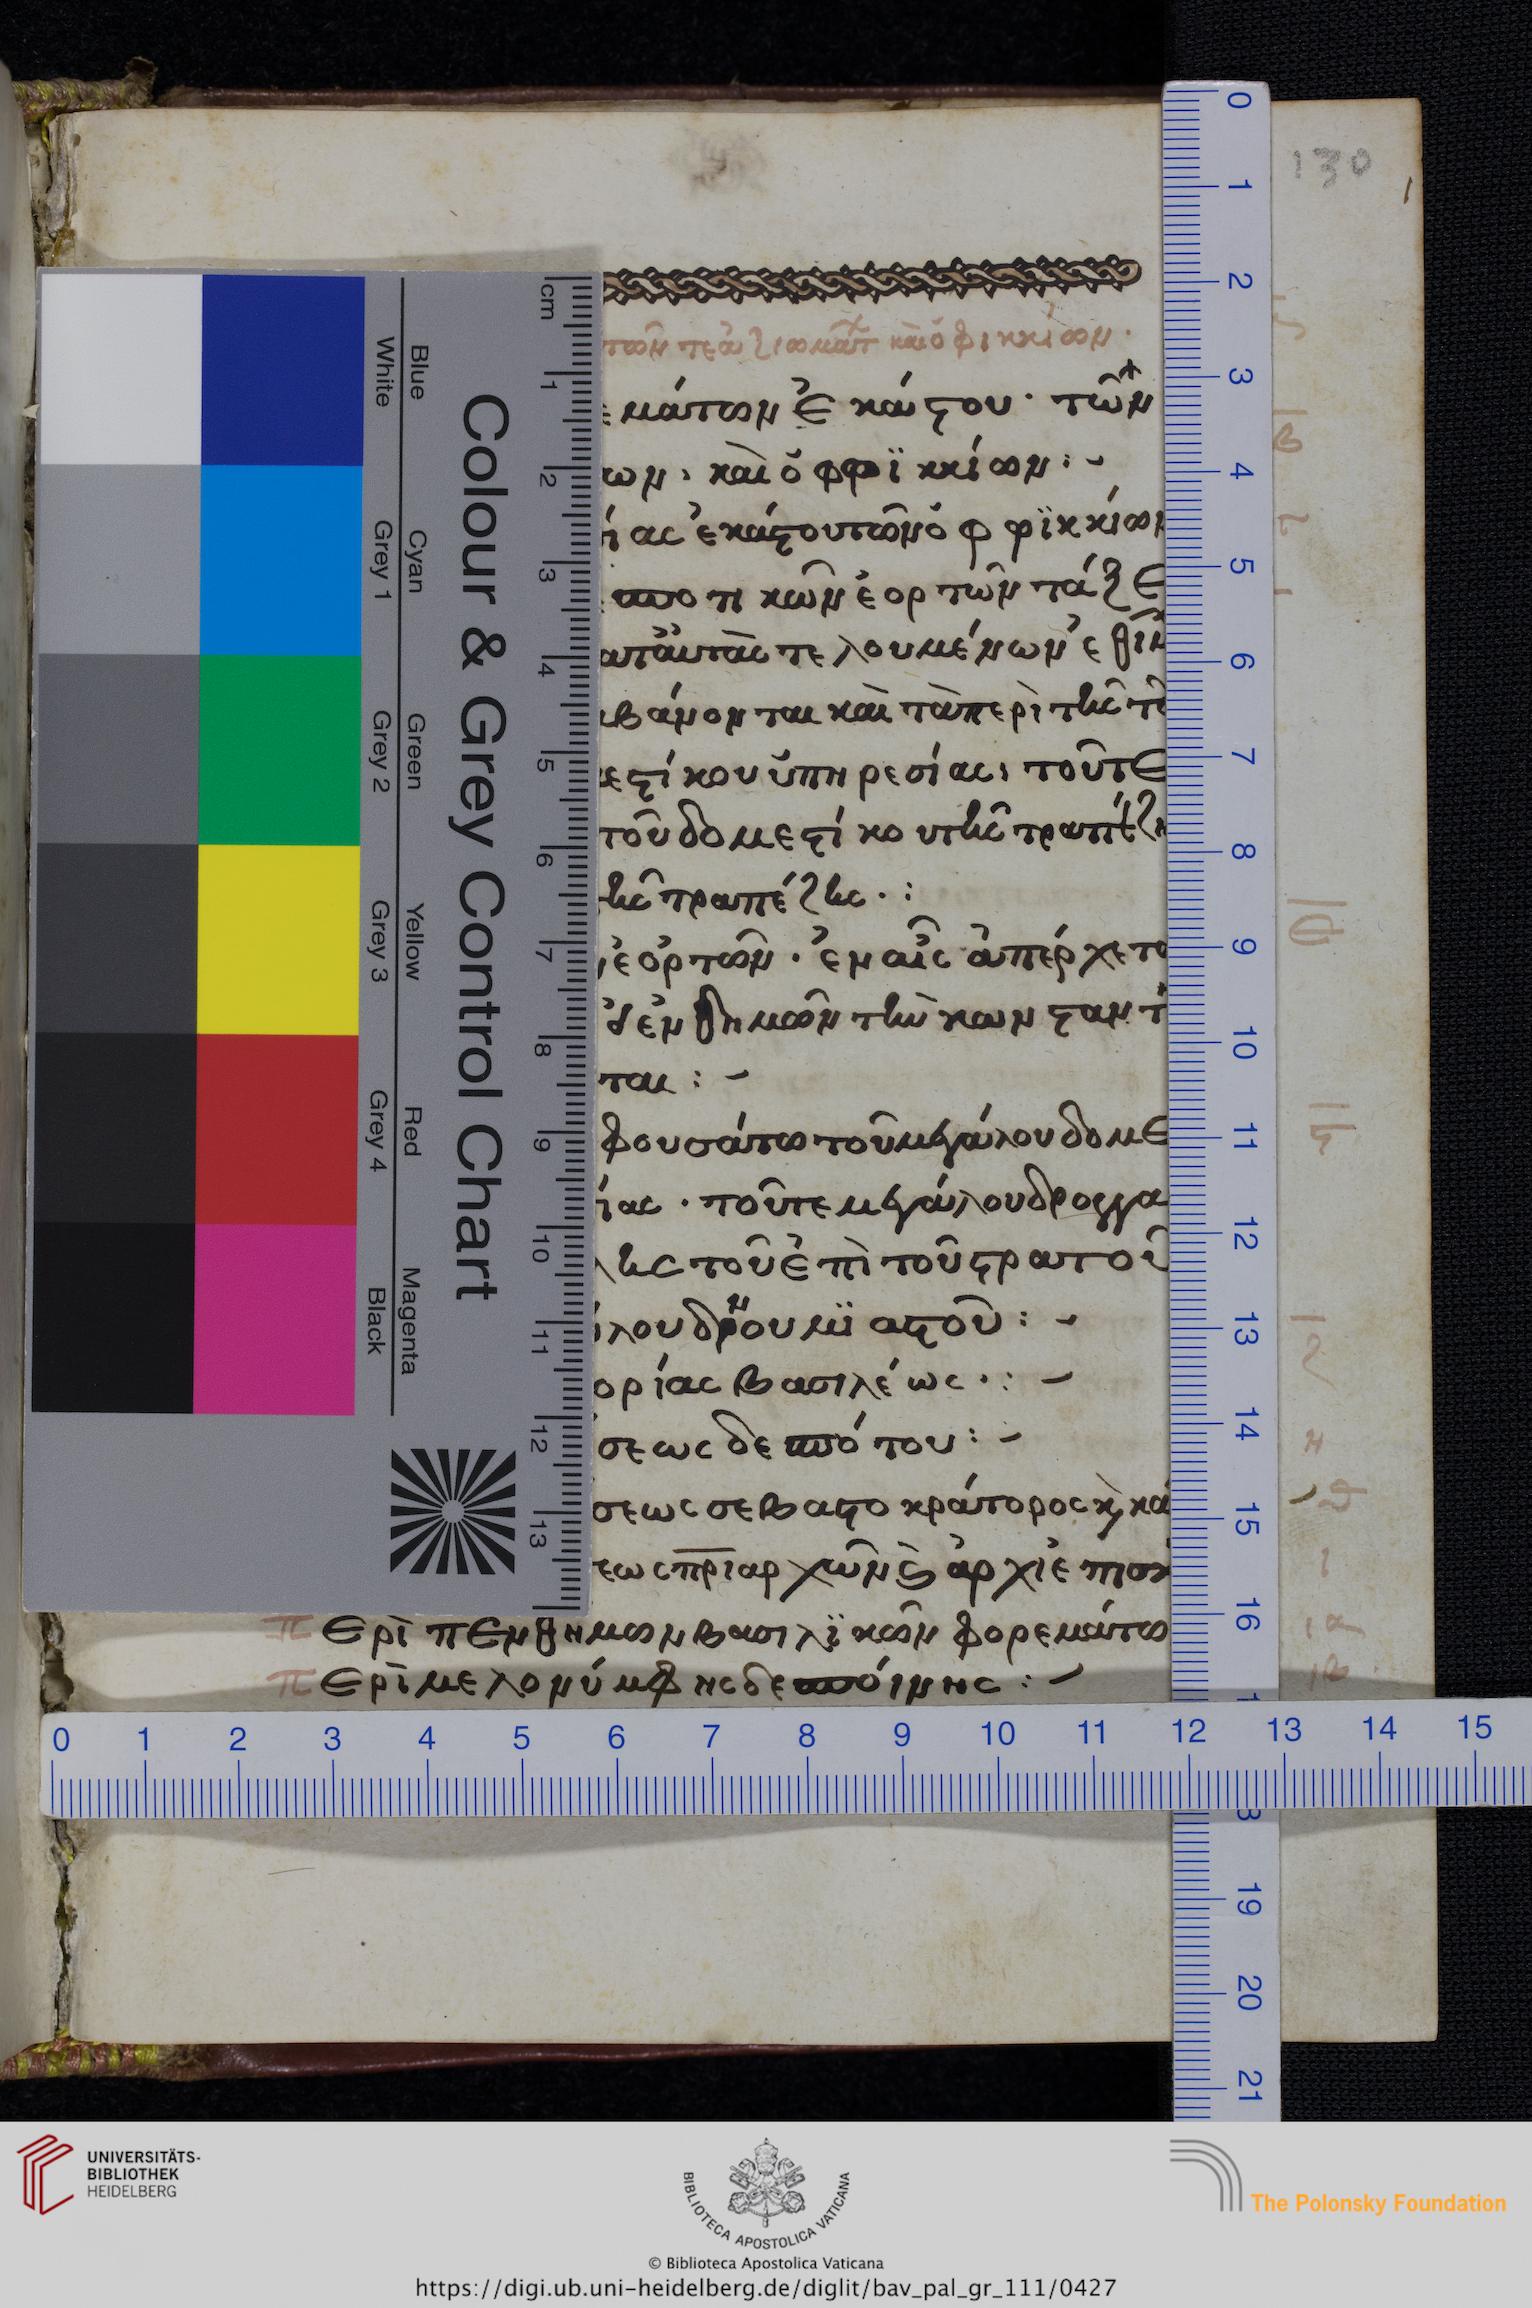 130
1
τῶν τε ἀξιωμάτ καὶ ὀφικκίων.
εμάτων ἑκάστου· τῶν
ων, καὶ ὀφφϊκκίων:-
ίας ἑκάστου τῶν ὀφφϊκκίων
δεσποτικῶν ἑορτῶν τάξε
αυτὰς τελουμένων ἐθίμ
βάνονται καὶ τὰ περὶ τῆς τ
εστίκου ὑπηρεσίας, τοῦ τε
τοῦ δομεστίκου τῆς τραπέζη
ῆς τραπέζης.:
ἑορτῶν. ἐν αἷς ἀπέρχετα
τὴν κωνσταντ
ται:-
φουσάτω τοῦ μεγάλου δομε
ίας. τοῦ τε μεγάλου δρουγγα
ης τοῦ ἐπὶ τοῦ στρατοῦ
λου δρουμϊαστοῦ:-
ορίας βασιλέως.:-
σεως δεσπότου:-
σεως σεβαστοκράτορος κ κα
εως πριαρχῶν κ ἀρχιεπισκ
Περὶ πενθήμων βασιλϊκῶν φορεμάτω
Περὶ μελονύμφης δεσποίνης:-
β
η
θ
ι
ια
ιβ
Colour & Grey Control Chart
Blue
White
Cyan
Grey 1
Green
Grey 2
Yellow
Grey 3
Red
Grey 4
Magenta
Black
cm
1
2
3
4
5
6
7
8
9
10
11
12
13
0
1
2
3
4
5
6
7
8
9
10
11
12
13
14
15
16
19
20
21
0 1 2 3 4 5 6 7 8 9 10 11 12 13 14 15
UNIVERSITÄTS-
BIBLIOTHEK
HEIDELBERG
BIBLIOTECA APOSTOLICA VATICANA
The Polonsky Foundation
© Biblioteca Apostolica Vaticana
https://digi.ub.uni-heidelberg.de/diglit/bav_pal_gr_111/0427